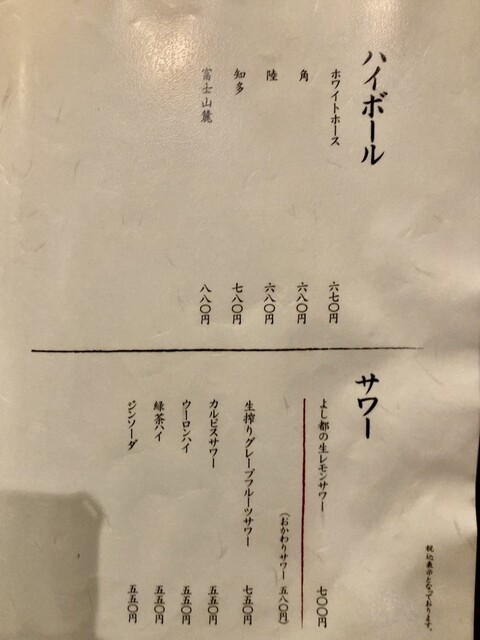 ハイボール
ホワイトホース 六七〇円
角 六八〇円
陸 六八〇円
知多 七八〇円
富士山麓 八八〇円
サワー
よし都の生レモンサワー 七〇〇円
(おかわりサワー 五八〇円)
生搾りグレープフルーツサワー 七五〇円
カルピスサワー 五五〇円
ウーロンハイ 五五〇円
緑茶ハイ 五五〇円
ジンソーダ 五五〇円
税込表示となっております。